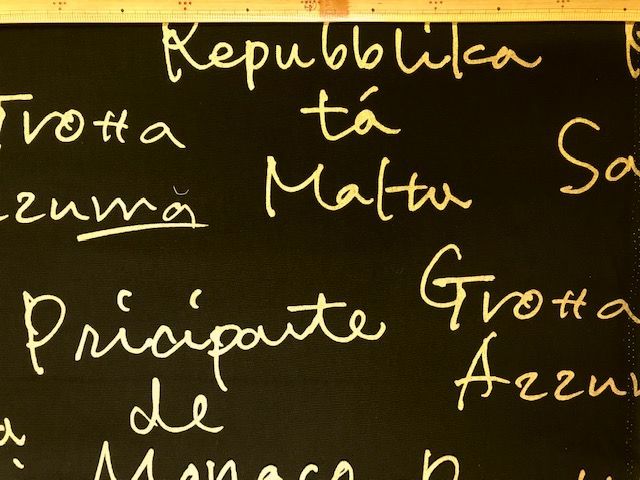 Repubblika
tá
Maltu
Trotta
zzumà
Sa
Pricipaute
de
Monaco
Grotta
Azzur